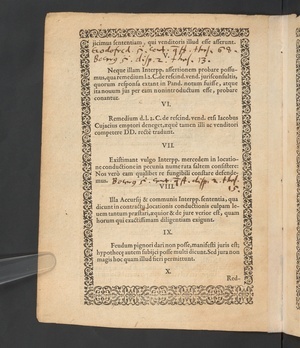 jicimus sententiam, qui venditoris illud esse asserunt.
Neque illam Interpp. assertionem probare possu-
mus, qua remedium l. 2. C. de rescind. vend. jurisconsultis,
quorum responsa extant in Pand. notum fuisse, neque
ita novum jus per eum nonintroductum esse, probare
conantur.
VI.
Remedium d. l. 2. C. de rescind. vend. etsi Jacobus
Cujacius emptori denegat, aquè tamen illi ac venditori
competere DD. rectè tradunt.
VII.
Existimant vulgo Interpp. mercedem in locatio-
ne conductione in pecunia numerata saltem consistere:
Nos verò eam quâlibet re fungibili constare defendi-
mus.
VIII.
Illa Accursij & communis Interpp. sententia, qua
dicunt in contractu locationis conductionis culpam le-
vem tantum præstari, æquior & de jure verior est, quam
horum qui exactissimam diligentiam exigunt.
IX.
Feudum pignori dari non posse, manifesti juris est;
hypothecæ autem subjici posse multi dicunt. Sed jura non
magis hoc quam illud fieri permittunt.
X.
Red-